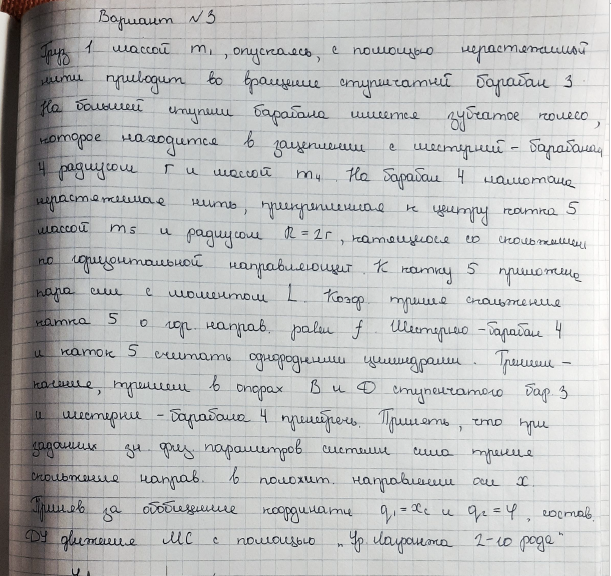 Вариант №3
Груз 1 массой m₁, опускаясь, с помощью нерастяжимой
нити приводит во вращение ступенчатый барабан 3
На большей ступени барабана имеется зубчатое колесо,
которое находится в зацеплении с шестерней-барабаном
4 радиусом r и массой m₄. На барабан 4 намотана
нерастяжимая нить, прикрепленная к центру катка 5
массой m5 и радиусом R=2r, катящиося со скольжением
по горизонтальной направляющей. К катку 5 приложена
пара сил с моментом L. Коэф. трения скольжения
катка 5 о гор. направ. равен f. Шестерню-барабан 4
и каток 5 считать однородными цилиндрами. Трением-
качение, трением в опорах B и D ступенчатого бар. 3
и шестерни-барабана 4 пренебречь. Принять, что при
заданных зн физ параметров системы сила трения
скольжения направ. в положит. направлении оси x.
Приняв за обобщенные координаты q₁=xc и q₂=φ, состав.
ДУ движения МС с помощью „Ур. Лагранжа 2-го рода"